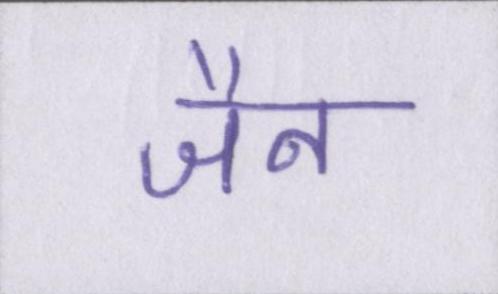 जैन